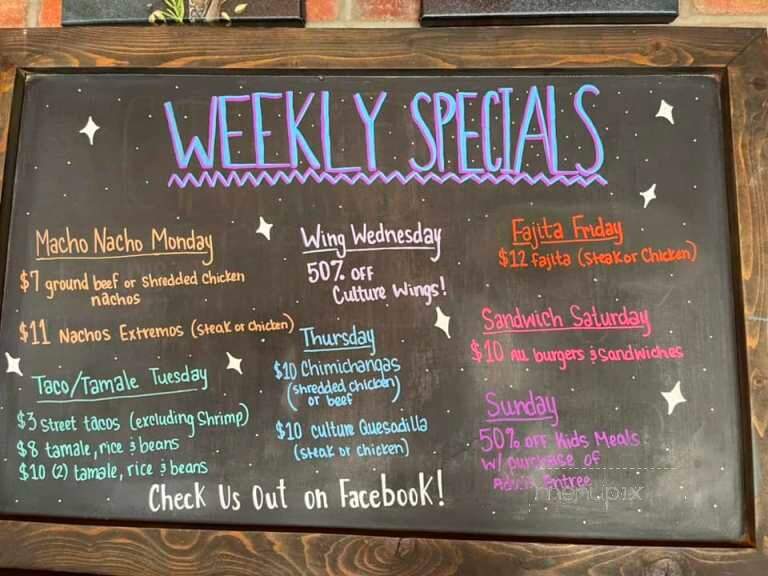 WEEKLY SPECIALS
Macho Nacho Monday
$7 ground beef or shredded chicken
nachos
$11 Nachos Extremos (steak or chicken)
Taco/Tamale Tuesday
$3 street tacos (excluding shrimp)
$8 tamale, rice & beans
$10 (2) tamale, rice & beans
Wing Wednesday
50% OFF
Culture Wings!
Thursday
$10 Chimichangas
(shredded chicken)
or beef
$10 culture Quesadilla
(steak or chicken)
Fajita Friday
$12 fajita (steak or chicken)
Sandwich Saturday
$10 All burgers & sandwiches
Sunday
50% OFF Kids Meals
w/ purchase of
Adult Entree
Check Us Out on Facebook!
menupix